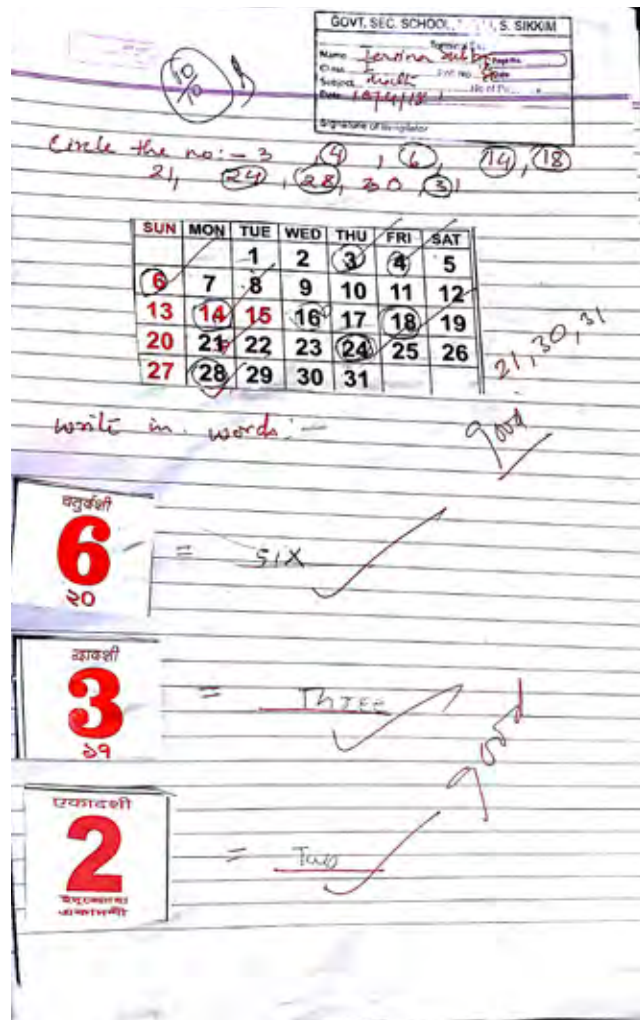 GOVT. SEC. SCHOOL, S. SIKKIM
Name
Class I
Subject Math
Date
Signature of Invigilator
10/10
Circle the no:- 3, 4, 6, 14, 18
21, 24, 28, 30, 31
SUN MON TUE WED THU FRI SAT
1 2 3 4 5
6 7 8 9 10 11 12
13 14 15 16 17 18 19
20 21 22 23 24 25 26
27 28 29 30 31
21, 30, 31
good
write in words:-
चतुर्दशी
6 = six
२०
द्वादशी
3 = Three
१७
good
एकादशी
2 = Two